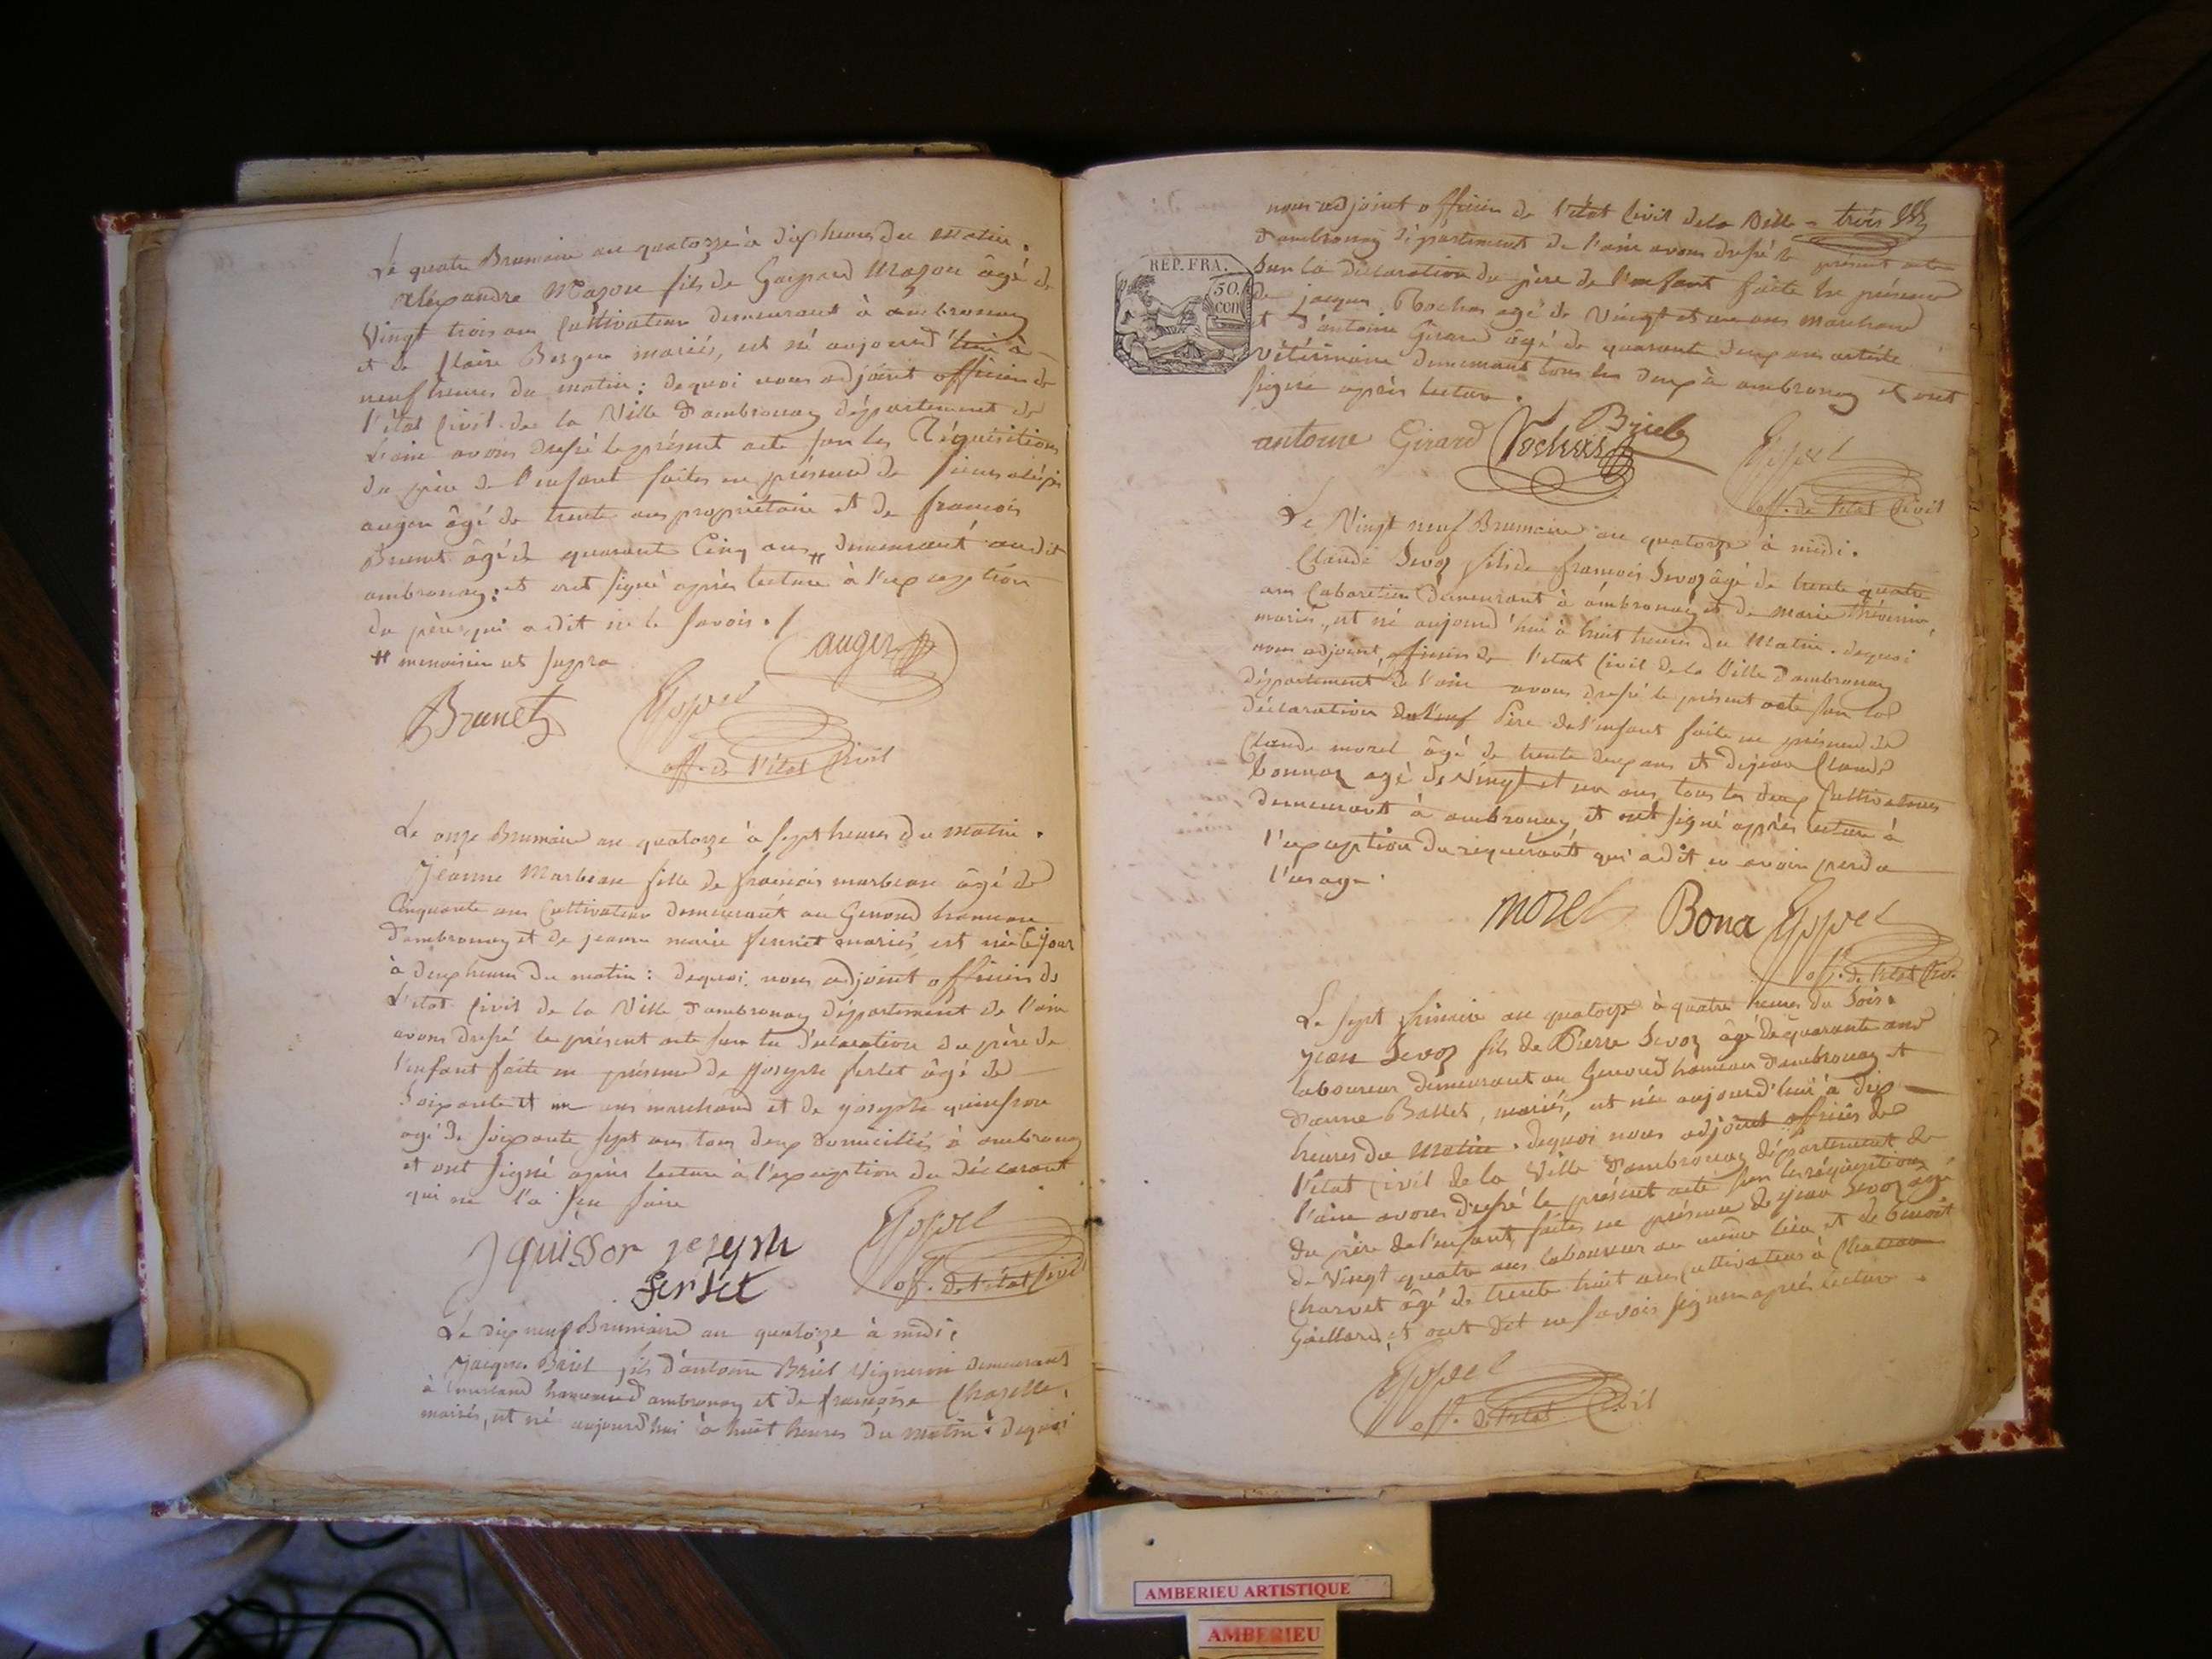 Le quatre Brumaire an quatorze à dix heures du matin.
Alexandre Mazou fils de Gaspard Mazou âgé de
Vingt trois ans Cultivateur demeurant à ambronay
et de Claire Berger mariés, est né aujourd'hui à
neuf heures du matin : dequoi nous adjoint officier de
l'état Civil de la Ville d'ambronay département de
L'ain avons dressé le présent acte sur les Réquisitions
du père de l'enfant faites en présence de
auger âgé de trente ans propriétaire et de francois
Brunet âgé de quarante Cinq ans # demeurant audit
ambronay; et ont signé après lecture à l'exception
du père qui a dit ne le savoir./
# menuisier ut supra
auger
Brunet
off. de l'état Civil
Le onze Brumaire an quatorze à sept heures du matin.
Jeanne Marbeau fille de francois marbeau âgé de
Cinquante ans Cultivateur demeurant au Genoud hameau
d'ambronay et de jeanne marie mariés est née Ce jour
à deux heures du matin : dequoi nous adjoint officier de
L'état Civil de la Ville d'ambronay département de l'ain
avons dressé le présent acte sur la déclaration du père de
l'enfant faite en présence de joseph ferlet âgé de
Soixante et un ans marchand et de joseph quinson
agé de soixante sept ans tous deux domiciliés à ambronay
et ont signé après lecture à l'exception du déclarant
qui ne l'a seu faire
jquisson joseph
ferlet
off. de l'état Civil
Le dix neuf Brumaire an quatorze à midi.
Jacques Briel fils d'antoine Briel Vigneron demeurant
à hameau d'ambronay et de françoise Chazelle,
mariés, est né aujourd'hui à huit heures du matin : dequoi
nous adjoint officier de l'état Civil de la Ville - trois
d'ambronay département de l'ain avons dressé le présent acte
Sur la déclaration du père de l'enfant faite en présence
de jacques Rochas agé de Vingt et un ans marchand
et d'antoine Girard âgé de quarante deux ans artiste
Vétérinaire demeurant tous les deux à ambronay et ont
signé après lecture.
REP. FRA.
50.
cen
antoine Girard Rochas Briel
off. de l'état Civil
Le Vingt neuf Brumaire an quatorze à midi.
Claude Sevoz fils de francois Sevoz âgé de trente quatre
ans Cabaretier demeurant à ambronay et de marie Thévenin,
mariés, est né aujourd'hui à huit heures du Matin. dequoi
nous adjoint, officier de l'état Civil de la Ville d'ambronay
département de l'ain avons dressé le présent acte sur la
déclaration Père de l'enfant faite en présence de
Claude morel âgé de trente deux ans et de jean Claude
bonnaz agé de vingt et un ans, tous les deux Cultivateurs
demeurant à ambronay et ont signé après lecture à
l'exception du requérant qui a dit en avoir perdu
l'usage.
morel Bona
off. de l'état Civ.
Le sept frimaire an quatorze à quatre heures du soir.
jean Sevoz fils de Pierre Sevoz âgé de quarante ans
laboureur demeurant au Genoud hameau d'ambronay et
d'anne Ballet, mariés, est née aujourd'hui à dix
heures du Matin. dequoi nous adjoint officier de
l'état Civil de la Ville d'ambronay département de
l'ain avons dressé le présent acte sur les réquisitions
du père de l'enfant, faites en présence de jean Sevoz agé
de Vingt quatre ans laboureur au même lieu et de benoit
Charvet âgé de trente huit ans Cultivateur à Chateau
Gaillard, et ont dit ne savoir signer après lecture.
off. de l'état Civil
AMBERIEU ARTISTIQUE
AMBERIEU